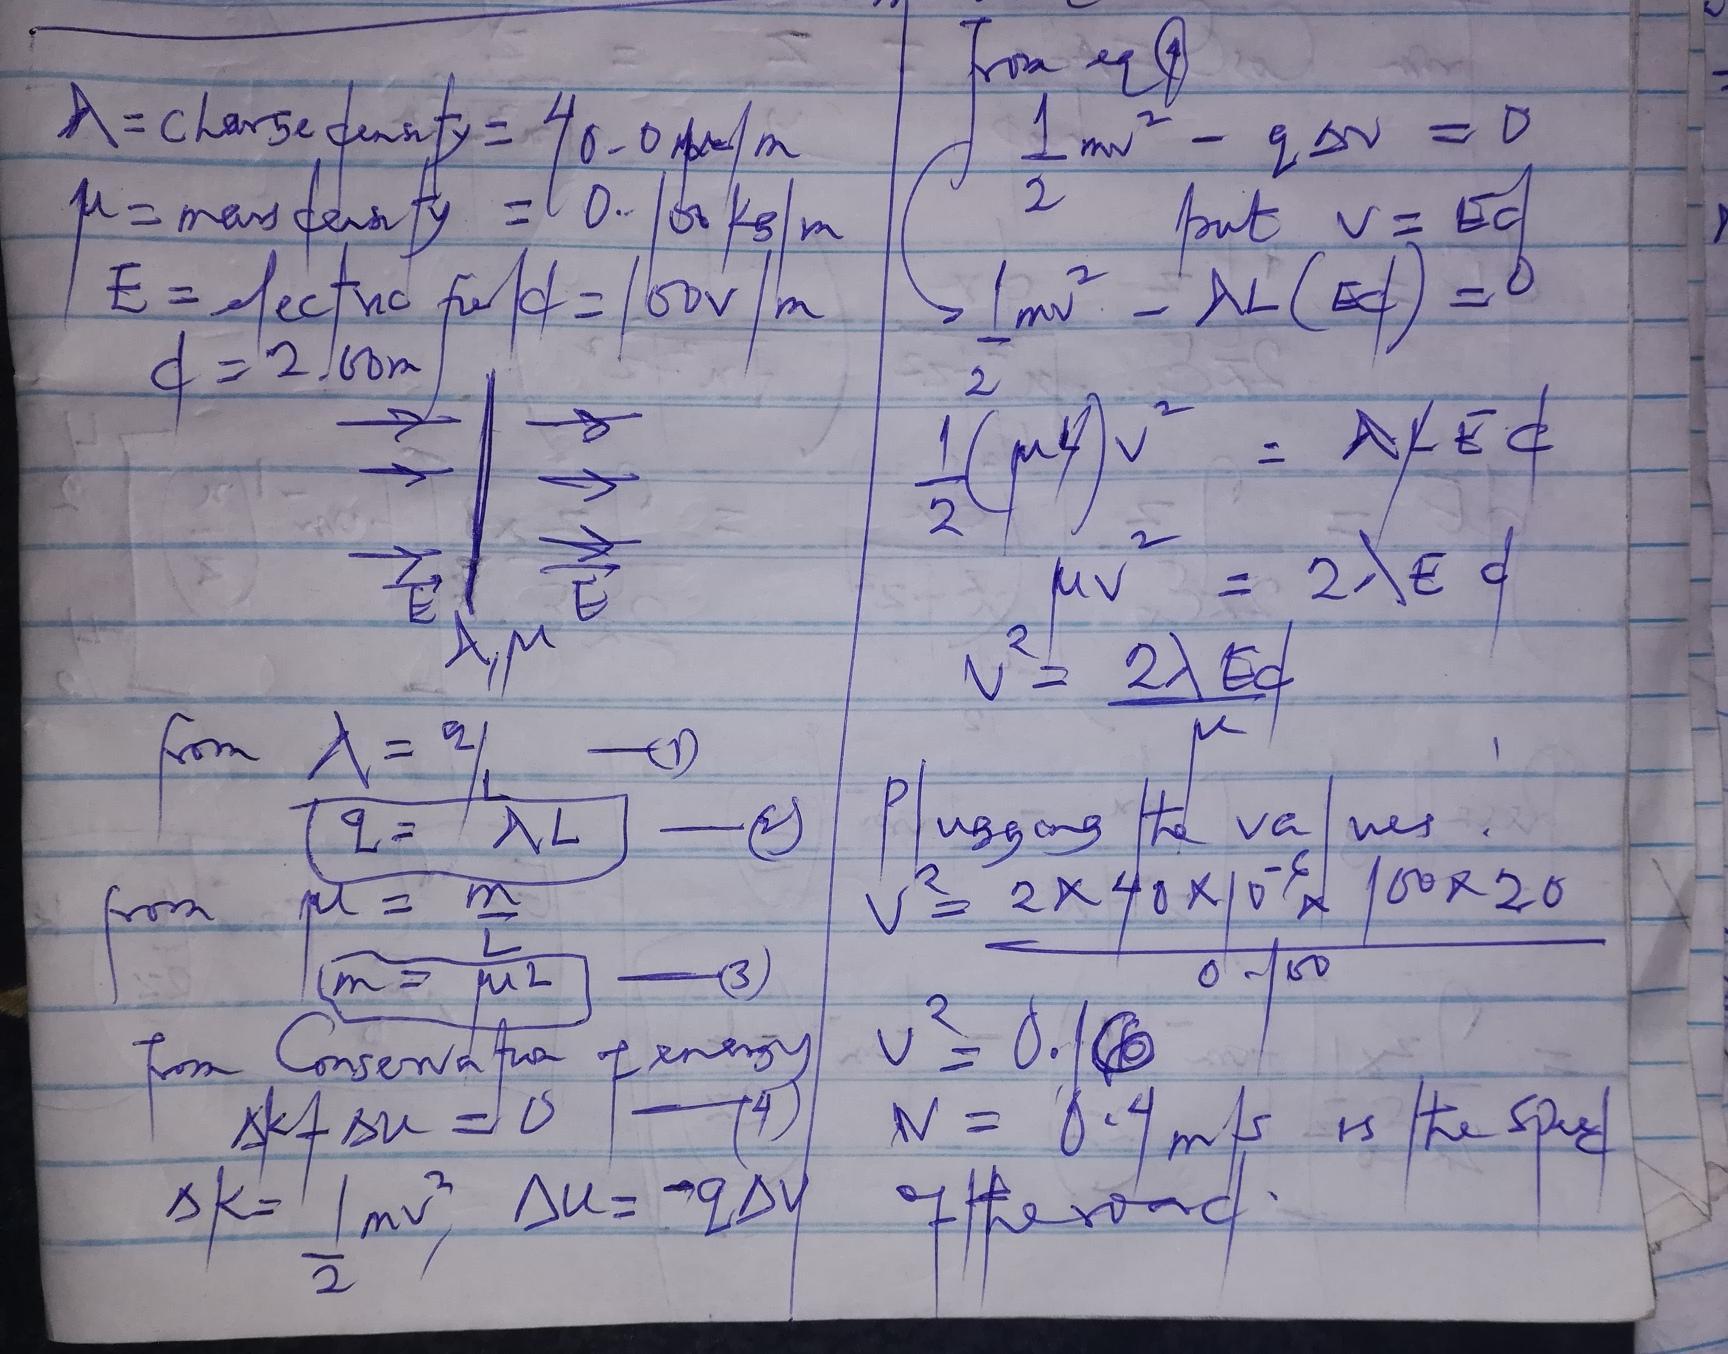 λ = charge density = 40.0 μc/m
μ = mass density = 0.100kg/m
E = electric field = 100v/m
d = 2.00m
E E
λ, μ
from λ = q/L —(1)
q = λL —(2)
from μ = m/L
m = μL —(3)
from Conservation of energy
Δk + Δu = 0 —(4)
Δk = 1/2 mv², Δu = -qΔV
from eq 4
1/2 mv² - qΔv = 0
but v = Ed
1/2 mv² - λL(Ed) = 0
1/2 (μL)v² = λLEd
μv² = 2λEd
v² = 2λEd/μ
Plugging the values.
v² = 2x40x10⁻⁶x 100x20/0.100
v² = 0.16
v = 0.4m/s is the speed
of the road.